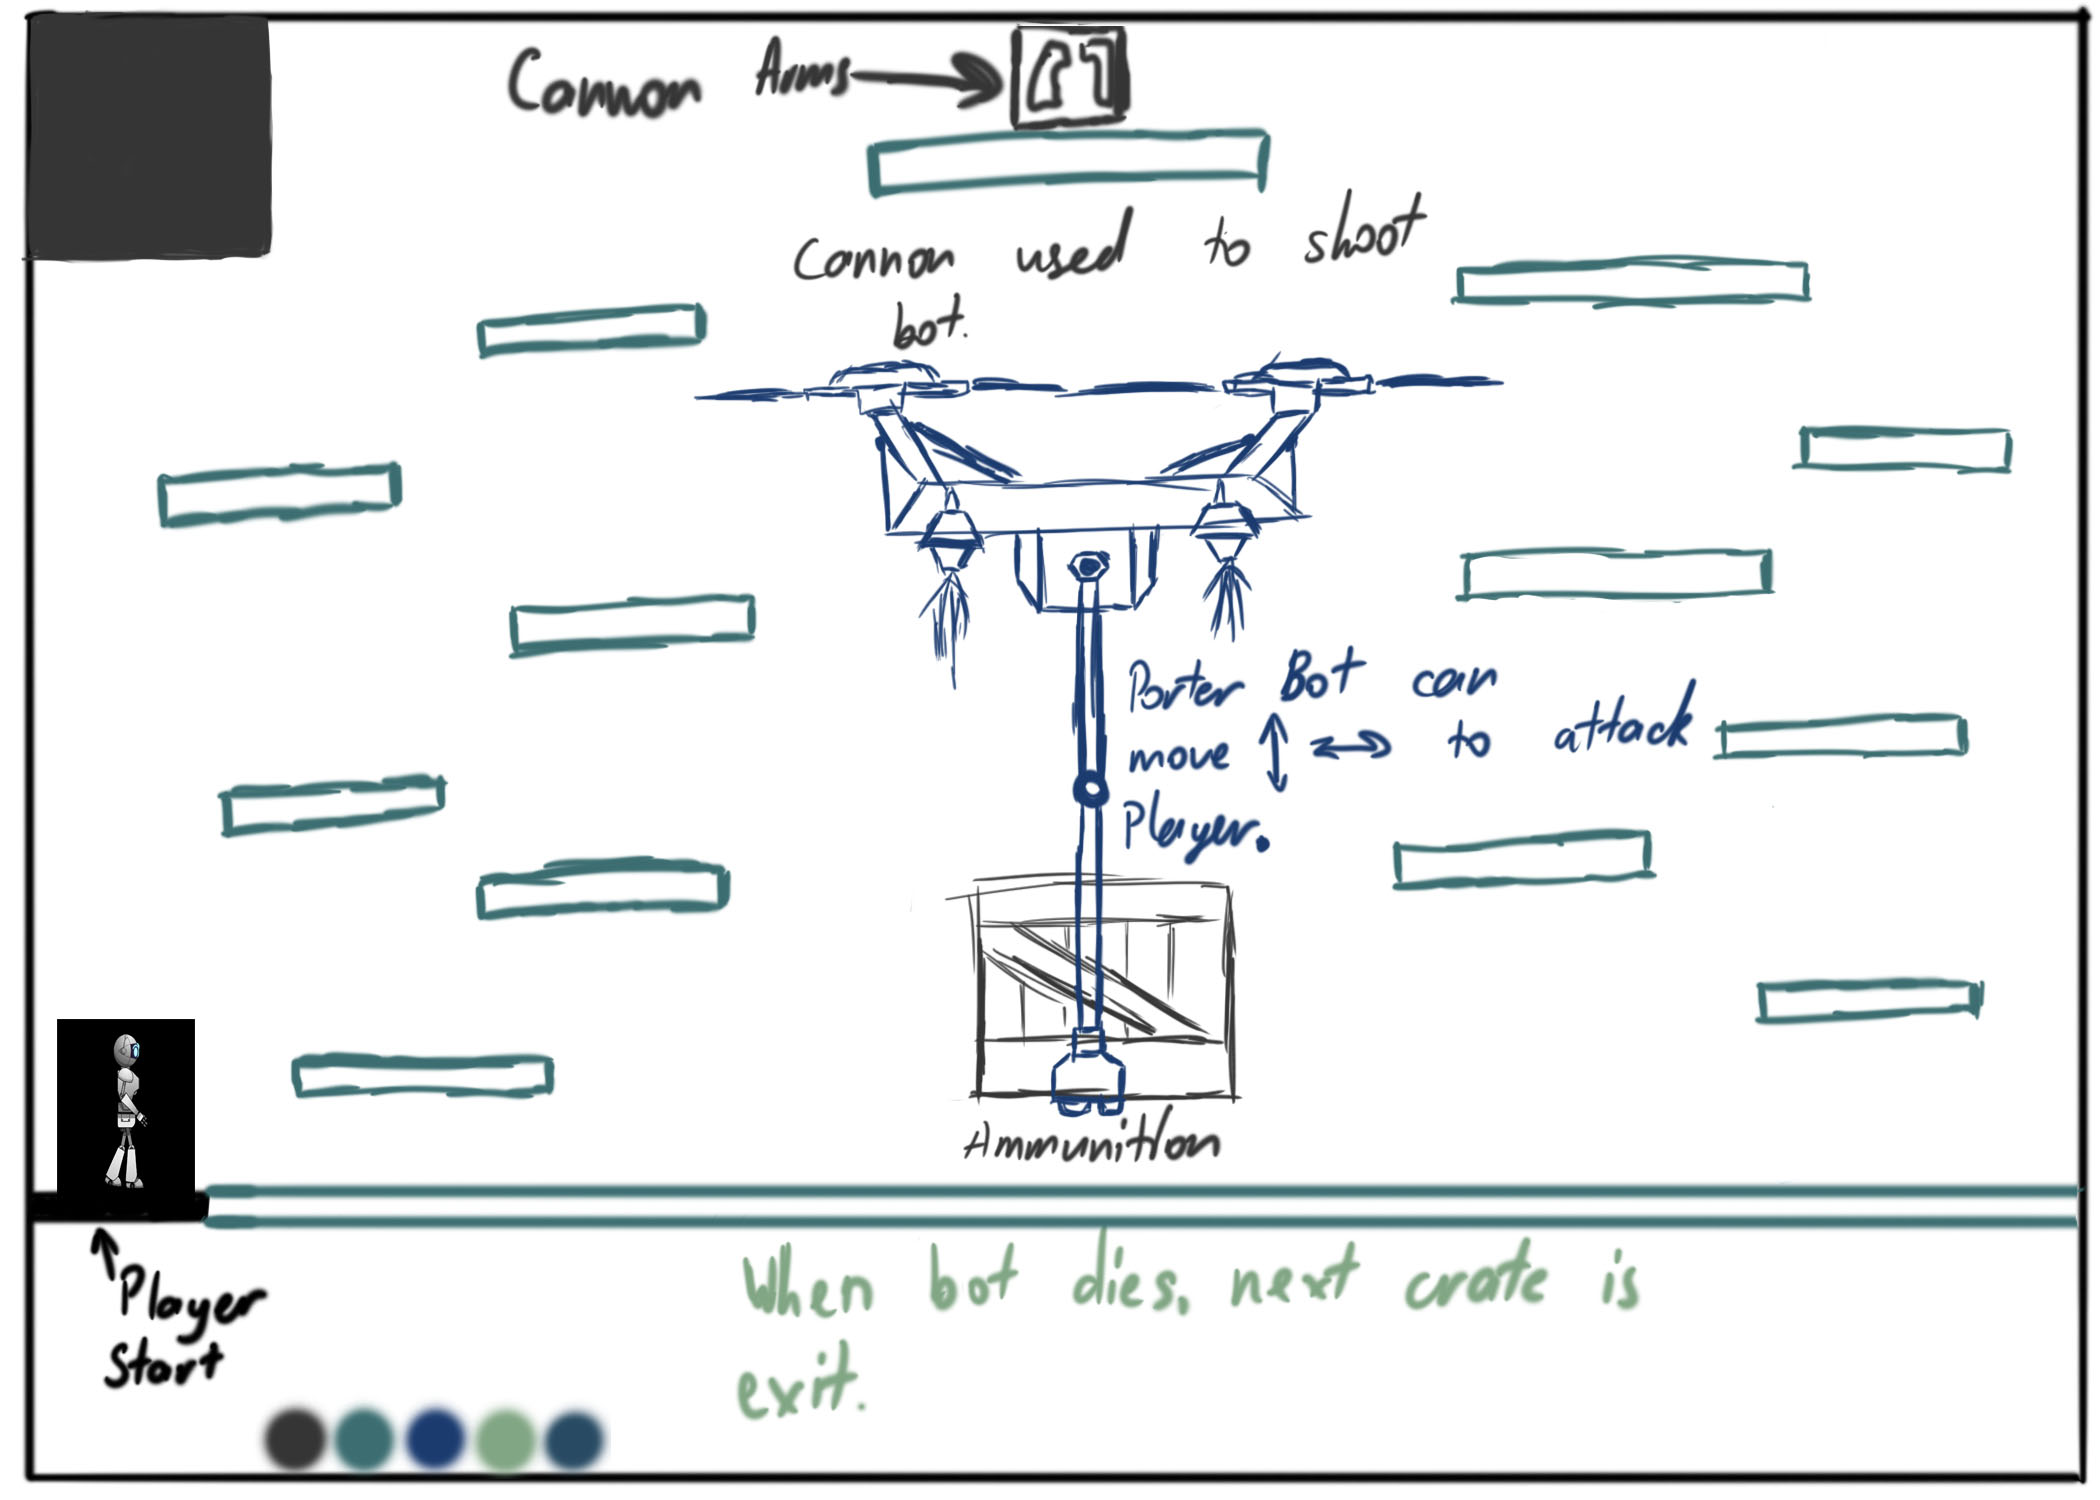 Cannon Arms
Cannon used to shoot
bot.
Porter Bot can
move to attack
Player.
Ammunition
Player
Start
When bot dies, next crate is
exit.